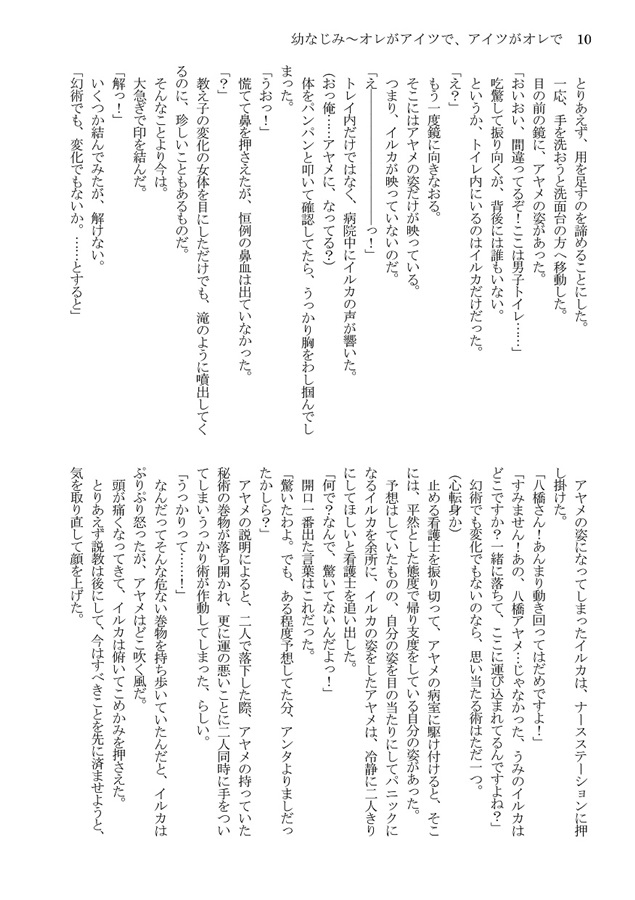 幼なじみ～オレがアイツで、アイツがオレで　10
　とりあえず、用を足すのを諦めることにした。
　一応、手を洗おうと洗面台の方へ移動した。
　目の前の鏡に、アヤメの姿があった。
「おいおい、間違ってるぞ！ここは男子トイレ……」
　吃驚して振り向くが、背後には誰もいない。
　というか、トイレ内にいるのはイルカだけだった。
「え？」
　もう一度鏡に向きなおる。
　そこにはアヤメの姿だけが映っている。
　つまり、イルカが映っていないのだ。
「え――――――――――っ！」
　トレイ内だけではなく、病院中にイルカの声が響いた。
（おっ俺……アヤメに、なってる？）
　体をパンパンと叩いて確認してたら、うっかり胸をわし掴んでし
まった。
「うおっ！」
　慌てて鼻を押さえたが、恒例の鼻血は出ていなかった。
「？」
　教え子の変化の女体を目にしただけでも、滝のように噴出してく
るのに、珍しいこともあるものだ。
　そんなことより今は。
　大急ぎで印を結んだ。
「解っ！」
　いくつか結んでみたが、解けない。
「幻術でも、変化でもないか。……とすると」
　アヤメの姿になってしまったイルカは、ナースステーションに押
し掛けた。
「八橋さん！あんまり動き回ってはだめですよ！」
「すみません！あの、八橋アヤメ…じゃなかった、うみのイルカは
どこですか？一緒に落ちて、ここに運び込まれてるんですよね？」
　幻術でも変化でもないのなら、思い当たる術はただ一つ。
（心転身か）
　止める看護士を振り切って、アヤメの病室に駆け付けると、そこ
には、平然とした態度で帰り支度をしている自分の姿があった。
　予想はしていたものの、自分の姿を目の当たりにしてパニックに
なるイルカを余所に、イルカの姿をしたアヤメは、冷静に二人きり
にしてほしいと看護士を追い出した。
「何で？なんで、驚いてないんだよっ！」
　開口一番出た言葉はこれだった。
「驚いたわよ。でも、ある程度予想してた分、アンタよりましだっ
たかしら？」
　アヤメの説明によると、二人で落下した際、アヤメの持っていた
秘術の巻物が落ち開かれ、更に運の悪いことに二人同時に手をつい
てしまいうっかり術が作動してしまった、らしい。
「うっかりって……！」
　なんだってそんな危ない巻物を持ち歩いていたんだと、イルカは
ぷりぷり怒ったが、アヤメはどこ吹く風だ。
　頭が痛くなってきて、イルカは俯いてこめかみを押さえた。
　とりあえず説教は後にして、今はすべきことを先に済ませようと、
気を取り直して顔を上げた。